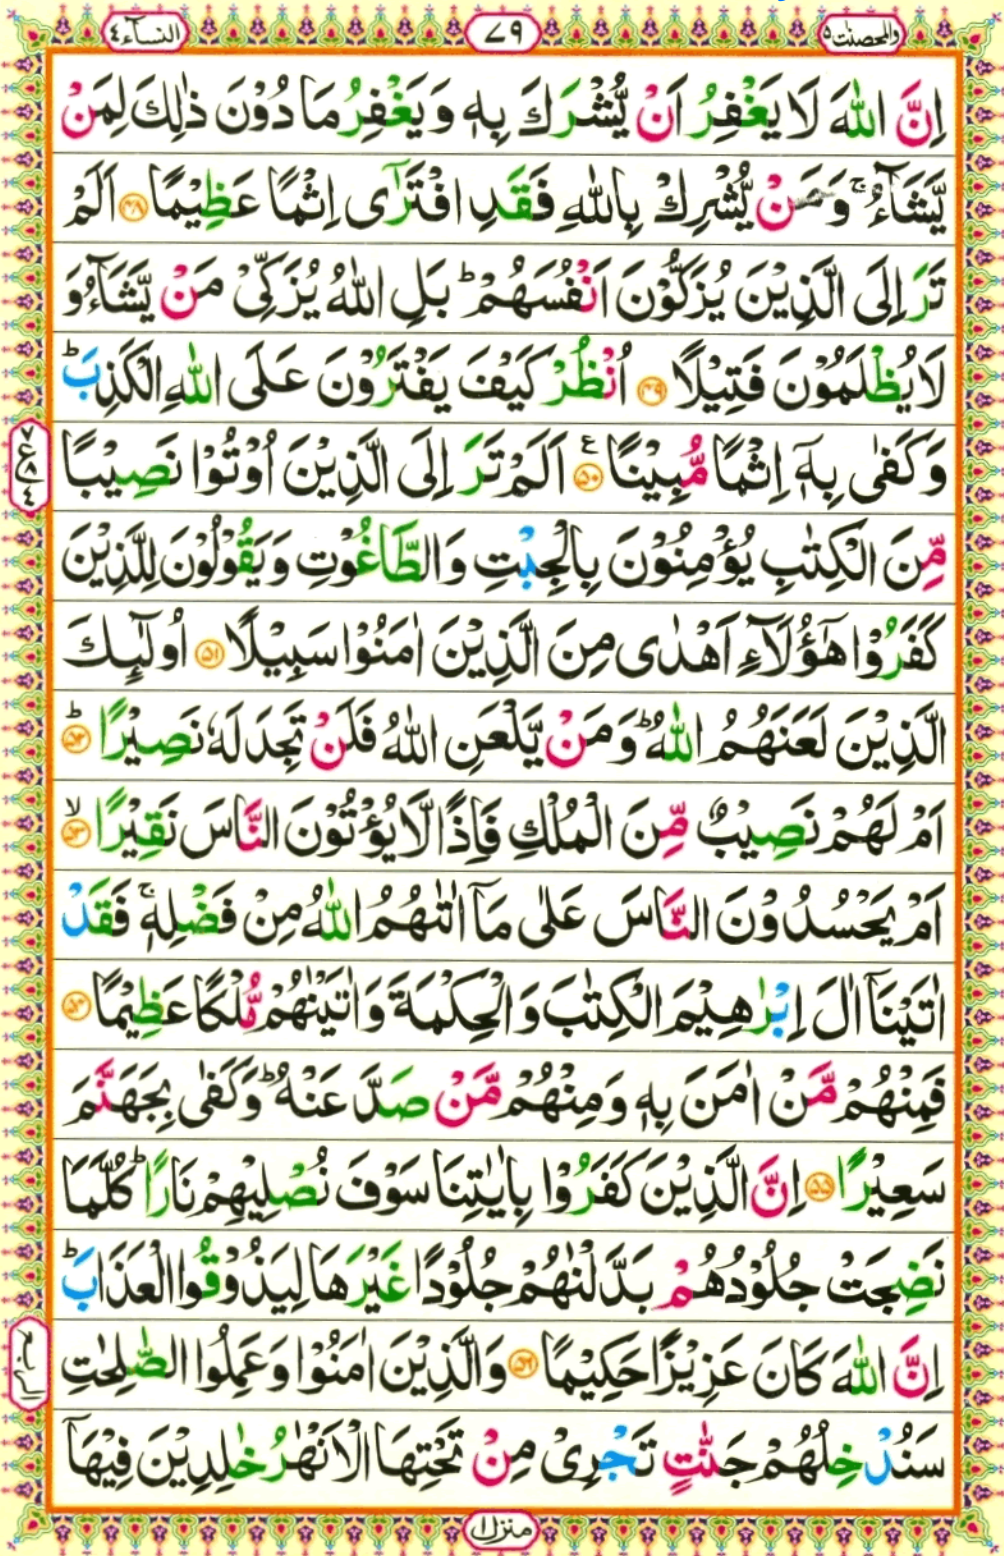 والمحصنت ٥
٧٩
النسآء ٤
اِنَّ اللّٰهَ لَا يَغْفِرُ اَنْ يُّشْرَكَ بِهٖ وَيَغْفِرُ مَا دُوْنَ ذٰلِكَ لِمَنْ
يَّشَآءُ ۚ وَمَنْ يُّشْرِكْ بِاللّٰهِ فَقَدِ افْتَرٰٓى اِثْمًا عَظِيْمًا ۝٤٨ اَلَمْ
تَرَ اِلَى الَّذِيْنَ يُزَكُّوْنَ اَنْفُسَهُمْ ؕ بَلِ اللّٰهُ يُزَكِّىْ مَنْ يَّشَآءُ وَ
لَا يُظْلَمُوْنَ فَتِيْلًا ۝٤٩ اُنْظُرْ كَيْفَ يَفْتَرُوْنَ عَلَى اللّٰهِ الْكَذِبَ ؕ
وَكَفٰى بِهٖۤ اِثْمًا مُّبِيْنًا ۝٥٠ ع اَلَمْ تَرَ اِلَى الَّذِيْنَ اُوْتُوْا نَصِيْبًا
مِّنَ الْكِتٰبِ يُؤْمِنُوْنَ بِالْجِبْتِ وَالطَّاغُوْتِ وَيَقُوْلُوْنَ لِلَّذِيْنَ
كَفَرُوْا هٰٓؤُلَآءِ اَهْدٰى مِنَ الَّذِيْنَ اٰمَنُوْا سَبِيْلًا ۝٥١ اُولٰٓئِكَ
الَّذِيْنَ لَعَنَهُمُ اللّٰهُ ؕ وَمَنْ يَّلْعَنِ اللّٰهُ فَلَنْ تَجِدَ لَهٗ نَصِيْرًا ؕ۝٥٢
اَمْ لَهُمْ نَصِيْبٌ مِّنَ الْمُلْكِ فَاِذًا لَّا يُؤْتُوْنَ النَّاسَ نَقِيْرًا ۙ۝٥٣
اَمْ يَحْسُدُوْنَ النَّاسَ عَلٰى مَاۤ اٰتٰىهُمُ اللّٰهُ مِنْ فَضْلِهٖ ۚ فَقَدْ
اٰتَيْنَاۤ اٰلَ اِبْرٰهِيْمَ الْكِتٰبَ وَالْحِكْمَةَ وَاٰتَيْنٰهُمْ مُّلْكًا عَظِيْمًا ۝٥٤
فَمِنْهُمْ مَّنْ اٰمَنَ بِهٖ وَمِنْهُمْ مَّنْ صَدَّ عَنْهُ ؕ وَكَفٰى بِجَهَنَّمَ
سَعِيْرًا ۝٥٥ اِنَّ الَّذِيْنَ كَفَرُوْا بِاٰيٰتِنَا سَوْفَ نُصْلِيْهِمْ نَارًا ؕ كُلَّمَا
نَضِجَتْ جُلُوْدُهُمْ بَدَّلْنٰهُمْ جُلُوْدًا غَيْرَهَا لِيَذُوْقُوا الْعَذَابَ ؕ
اِنَّ اللّٰهَ كَانَ عَزِيْزًا حَكِيْمًا ۝٥٦ وَالَّذِيْنَ اٰمَنُوْا وَعَمِلُوا الصّٰلِحٰتِ
سَنُدْخِلُهُمْ جَنّٰتٍ تَجْرِىْ مِنْ تَحْتِهَا الْاَنْهٰرُ خٰلِدِيْنَ فِيْهَاۤ
٧
ع
٨
٤
الربع
منزل ١